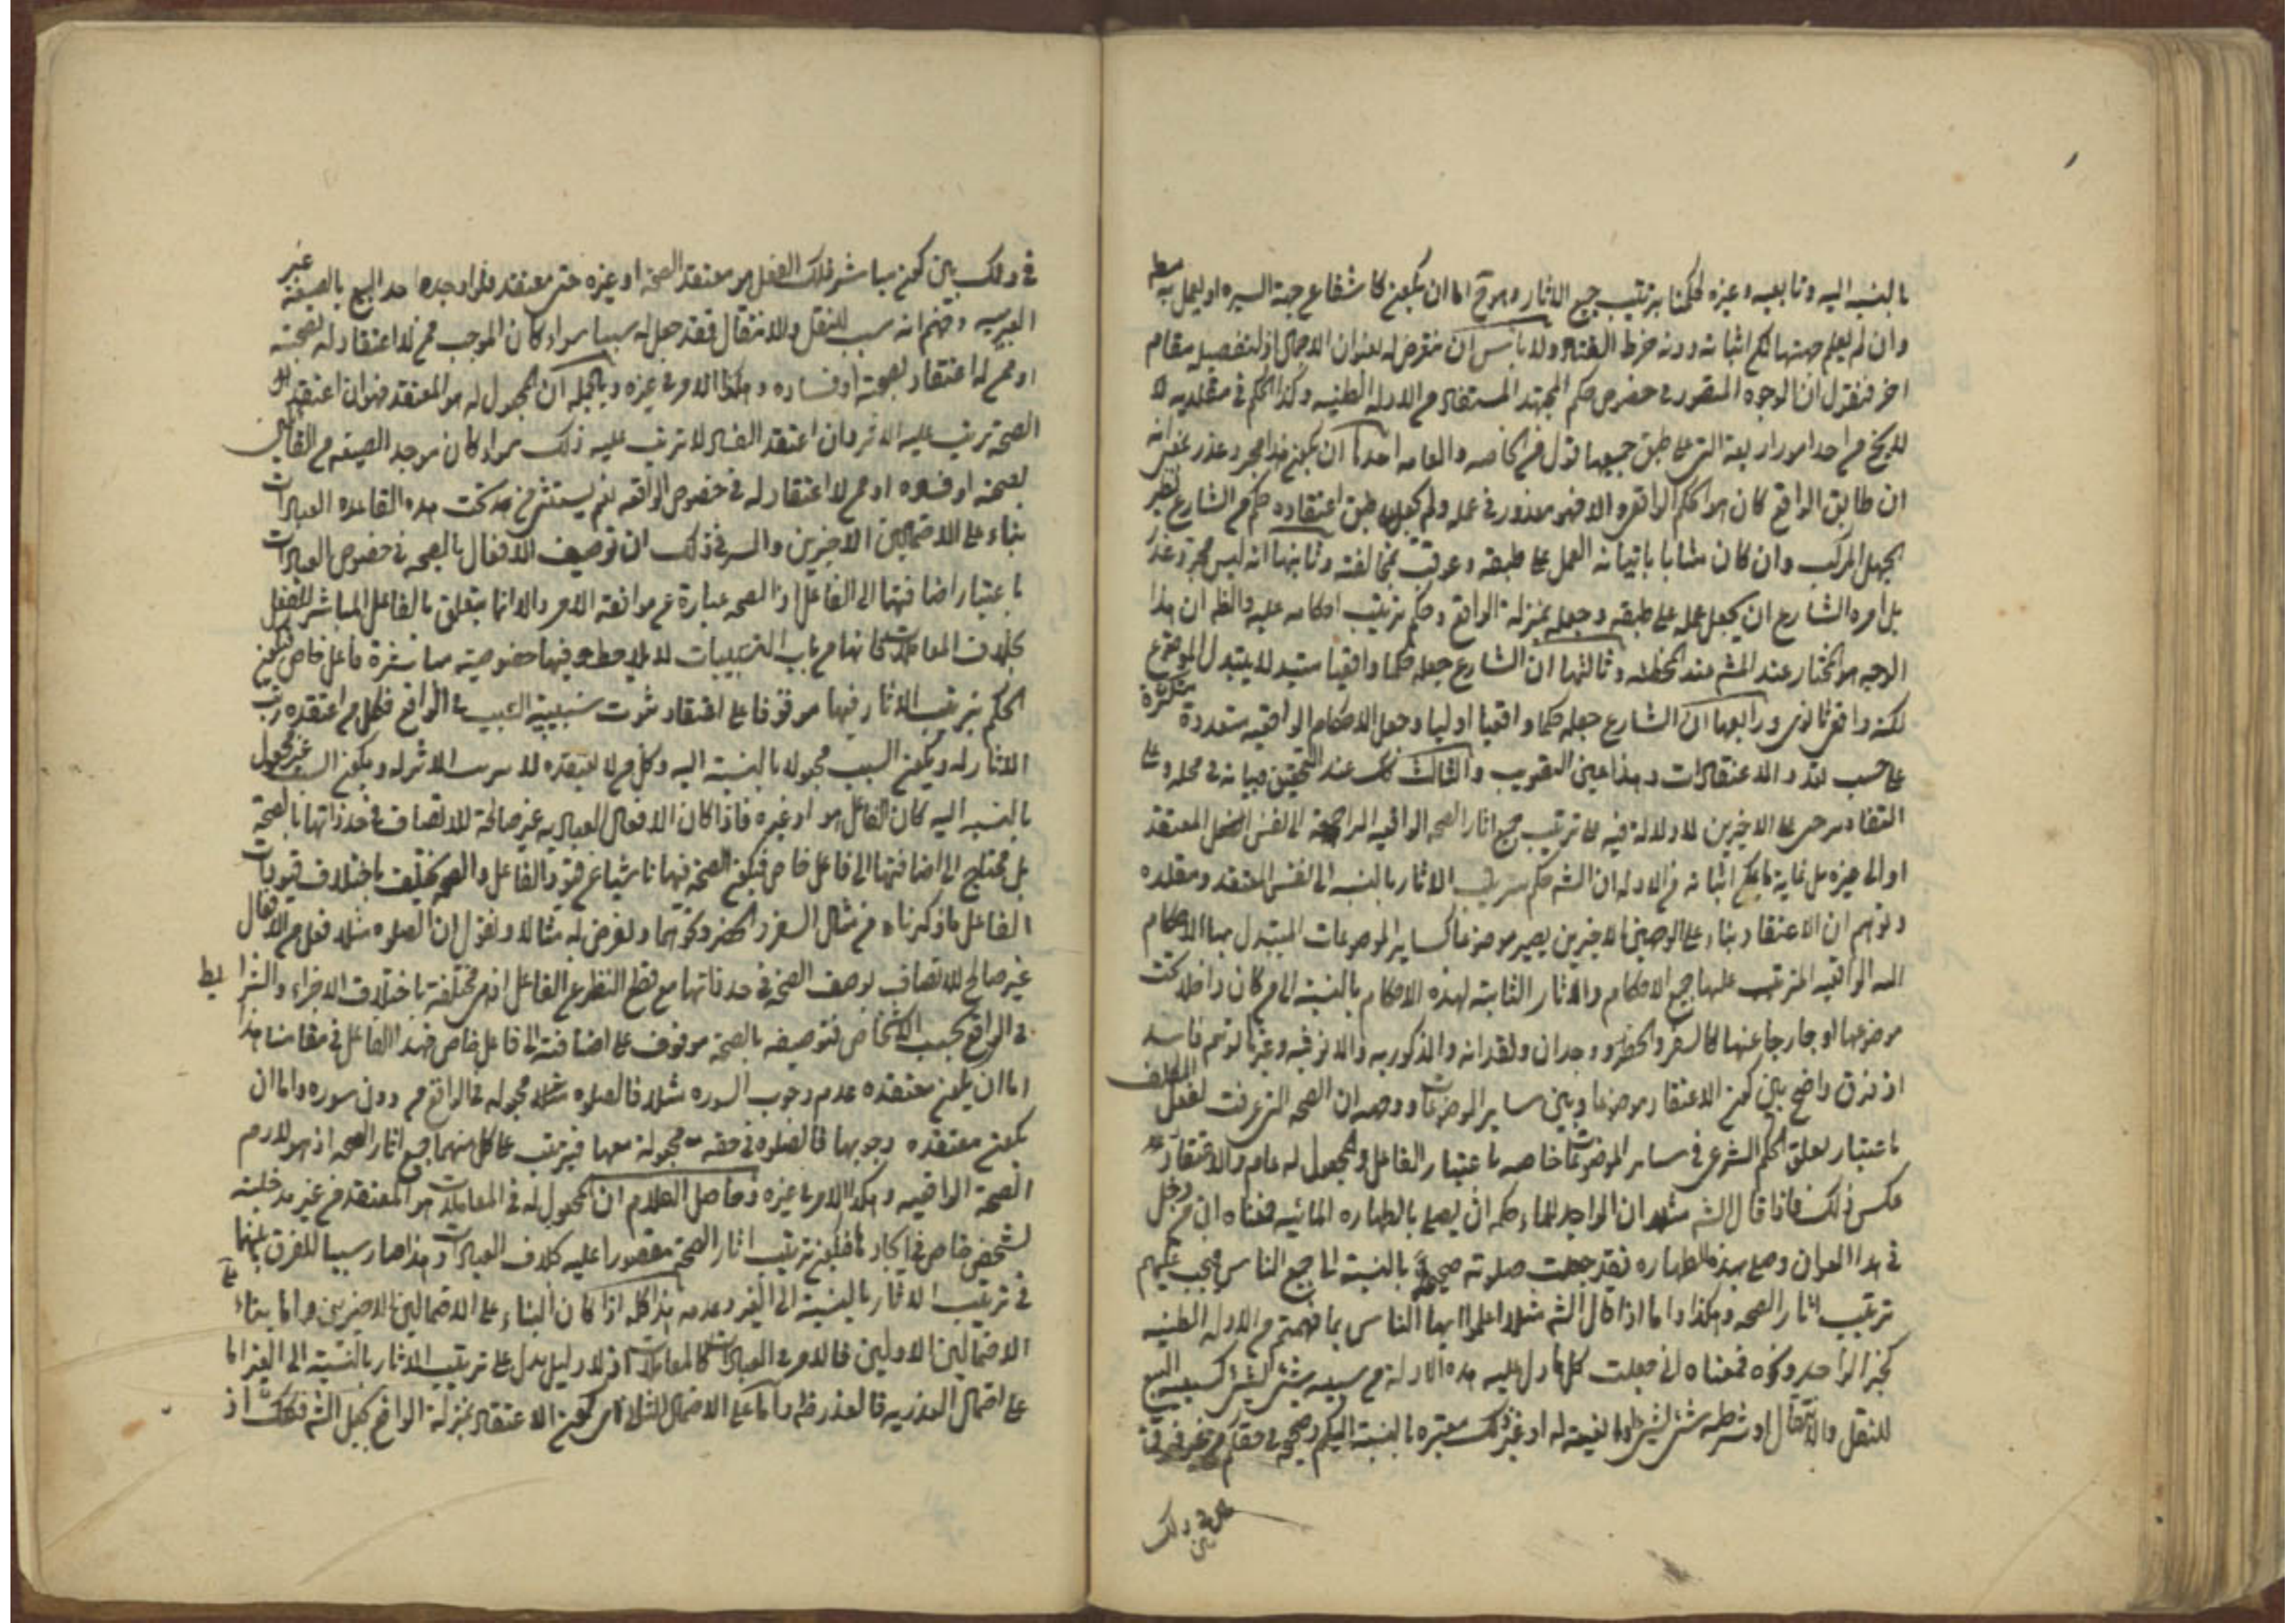 بالنسبه اليه وتابعيه وغيره لحكمنا بترتيب جميع الاثار وهو اما ان يكون كاشفا عن جهة السيره او ليعمل به
وان لم يعلم جهتها لكن اثباته دونه خرط القتاد ولا باس ان نتعرض له بعنوان الاجمال اذ للتفصيل مقام
اخر فنقول ان الوجوه المتصوره في خصوص حكم المجتهد المستفاد من الادله الظنيه وكذا الحكم في مقلديه لا
يخ من احد امور اربعة التي على طبق جميعها قول من الخاصه والعامه احدها ان يكون هذا مجرد عذر بمعنى انه
ان طابق الواقع كان هو الحكم الواقعي والا فهو معذور في عمله ولم يجعل على طبق اعتقاده حكم من الشارع نظير
الجهل المركب وان كان مثابا باتيانه العمل على طبقه وعوقب بمخالفته وثانيها انه ليس مجرد عذر
بل امره الشارع ان يجعل عمله على طبقه وجعله بمنزلة الواقع وحكم بترتيب احكامه عليه والظ ان هذا
الوجه هو المختار عند المش عند المخطئه وثالثها ان الشارع جعله حكما واقعيا يتبدل بتبدل الموضوع
لكنه واقعي ثانوي ورابعها ان الشارع جعله حكما واقعيا اوليا وجعل الاحكام الواقعيه متعددة متكثرة
على حسب الاعتقادات وهذا عين التصويب والثالث عند التحقيق وبيانه في محله وعلى
التقادير حتى على الاخيرين لا دلالة فيه على ترتيب جميع اثار الصحه الواقعيه الراجعة الى نفس المعتقد
او الى غيره بل غاية ما يمكن اثباته من الادله ان الش حكم بترتيب الاثار بالنسبه الى نفس المعتقد ومقلده
وتوهم ان الاعتقاد بناء على الوجهين الاخيرين يصير موضوعا كساير الموضوعات المتبدل بها الاحكام
الواقعيه المترتب عليها جميع الاحكام والاثار الثابته لهذه الاحكام بالنسبة الى من كان داخلا تحت
موضوعها او خارجا عنها كالسفر والحضر ووجدان وفقدانه والذكوريه والانوثيه وغيرها توهم فاسد
اذ فرق واضح بين كون الاعتقاد موضوعا وبين ساير الموضوعات ووجهه ان الصحه التي عرفت لفعل المكلف
باعتبار تعلق الحكم الشرعي في ساير الموضوعات خاصه باعتبار الفاعل والمجعول له عام والاعتقاد
عكس ذلك فاذا قال الش مثلا ان الواجد للماء حكمه ان يصلي بالطهاره المائيه فمعناه ان من دخل
في هذا العنوان وصلى بهذه الطهاره فقد جعلت صلوته صحيحة بالنسبة الى جميع الناس فيجب عليهم
ترتيب اثار الصحه وهكذا واما اذا قال الش مثلا اعملوا ايها الناس بما فهمتم من الادله الظنيه
كخبر الواحد ونحوه فمعناه اني جعلت كل ما دل عليه هذه الادلة من سببيه شئ لشئ كسببيه البيع
للنقل والانتقال او شرطيه شئ لشئ او مانعيته له او غير ذلك معتبره بالنسبة اليكم وصحيحه في حقكم من غير فرق
في ذلك بين
في ذلك بين كون مباشر ذلك الفعل هو معتقد الصحة او غيره حتى معتقد فلو اوجد احد البيع بالصيغه غير
العربيه وفهم انه سبب للنقل والانتقال فقد جعل له سببا سواء كان الموجب ممن لا اعتقاد له بصحته
او ممن له اعتقاد بصحته او فساده وهكذا الامر في غيره وبالجمله ان المجعول له هو المعتقد فهو ان اعتقد
الصحة ترتب عليه الاثر وان اعتقد الفساد لا ترتب عليه ذلك سواء كان موجد الصيغه من القائلين
بصحته او فساده او ممن لا اعتقاد له في خصوص الواقعه نعم يستثنى من تحت هذه القاعده العبادات
بناء على الاحتمالين الاخيرين والسر في ذلك ان توصيف الافعال بالصحه في خصوص العبادات
باعتبار اضافتها الى الفاعل اذ الصحه عبارة عن موافقة الامر والامر انما يتعلق بالفاعل المباشر للفعل
بخلاف المعاملات فانها من باب التسبيبات لا يلاحظ فيها خصوصيه مباشرة فاعل خاص فيكون
الحكم بترتب الاثار فيها موقوفا على اعتقاد ثبوت سببية السبب في الواقع فكل من اعتقده رتب
الاثار له ويكون السبب مجعولا بالنسبة اليه وكل من لا يعتقده لا يترتب الاثر له ويكون السبب غير مجعول
بالنسبه اليه كان الفاعل هو او غيره فاذا كان الافعال العباديه غير صالحة للاتصاف في حد ذاتها بالصحة
بل محتاج الى اضافتها الى فاعل خاص فيكون الصحة فيها ناشيا عن قيود الفاعل والصحه تختلف باختلاف قيودات
الفاعل ما ذكرناه من مثال السفر والحضر ونحوهما ولنفرض له مثالا ونقول ان الصلوه مثلا فعل من الافعال
غير صالح للاتصاف بوصف الصحه في حد ذاتها مع قطع النظر عن الفاعل اذ هي مختلفة باختلاف الاجزاء والشرايط
في الواقع بحسب الاشخاص فتوصيفه بالصحة موقوف على اضافته الى فاعل خاص فهذا الفاعل في مقامنا هذا
اما ان يكون معتقده عدم وجوب السوره مثلا فالصلوه مجعوله في الواقع من دون سوره واما ان
يكون معتقده وجوبها فالصلوه في حقه مجعولة معها فيترتب على كل منهما جميع اثار الصحه اذ هو لازم
الصحة الواقعيه وهكذا الامر في غيره وحاصل الكلام ان المجعول له في المعاملات هو المعتقد من غير مدخلية
لشخص خاص في ايجاده فيكون ترتيب اثار الصحة مقصورا عليه بخلاف العبادات وهذا صار سببا للفرق بينهما
في ترتيب الاثار بالنسبة الى الغير وعدمه هذا كله اذا كان البناء على الاحتمالين الاخيرين واما بناء على
الاحتمالين الاولين فالامر في العبادات كالمعاملات اذ لا دليل يدل على ترتيب الاثار بالنسبة الى الغير اما
على احتمال العذريه فالعذر ظ واما على الاحتمال الثاني كون الاعتقاد بمنزلة الواقع بجعل الش فكك اذ